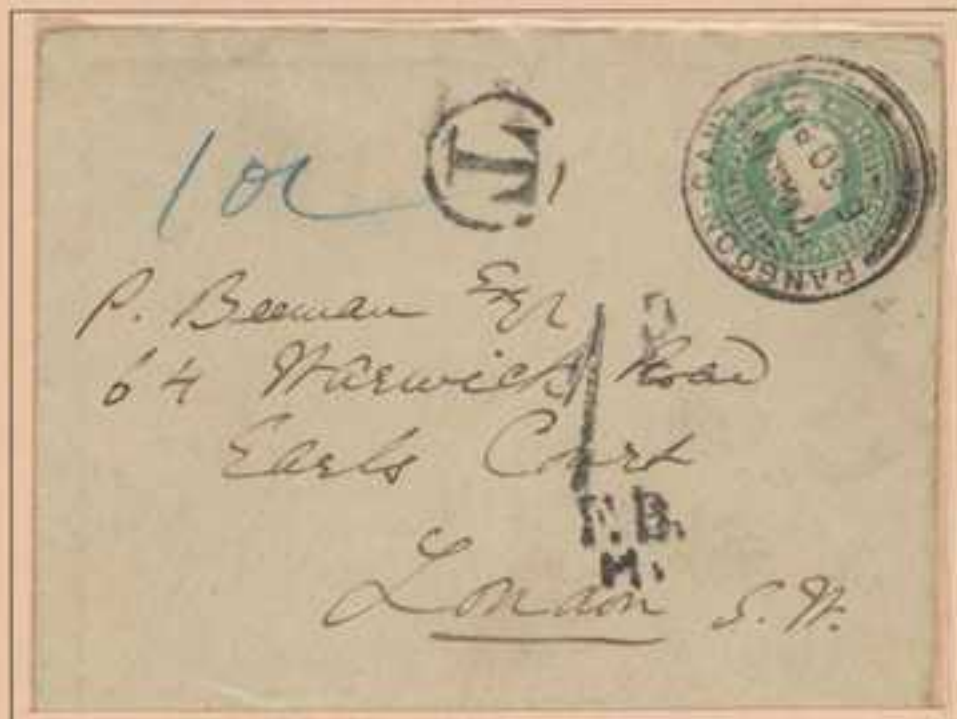 10c
T
RANGOON CANT
P. Beeman Esqr
64 Warwick Road
Earls Court
1 D
F.B.
H.
London S.W.